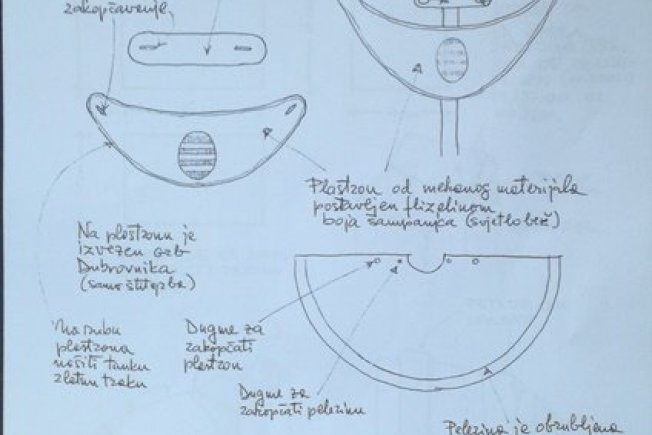 zakopčavanje
Plastron od mekanog materijala
postavljen flizelinom
boja šampanjca (svjetlo bež)
Na plastronu je
izvezen Grb
Dubrovnika
(samo štit grba)
Na rubu
plastrona
našiti tanku
zlatnu traku
Dugme za
zakopčati
plastron
Dugme za
zakopčati pelerinu
Pelerina je obrubljena